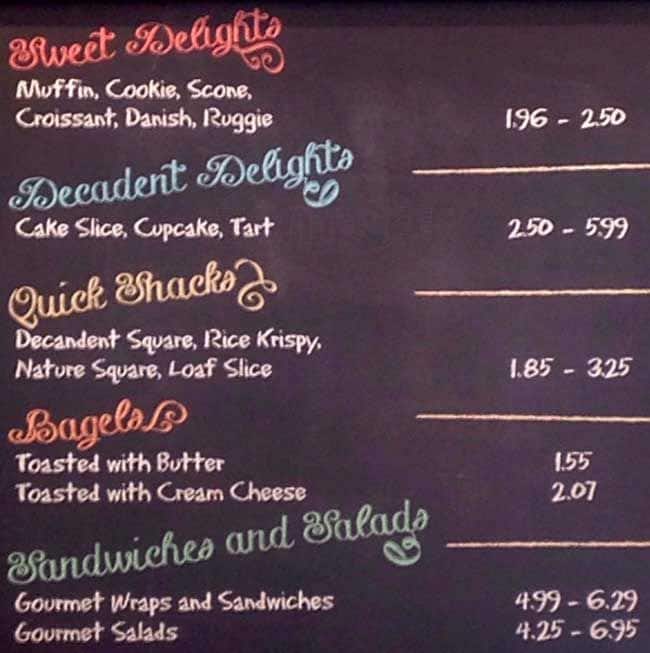 Sweet Delights
Muffin, Cookie, Scone,
Croissant, Danish, Ruggie 1.96 - 2.50
Decadent Delights
Cake Slice, Cupcake, Tart 2.50 - 5.99
Quick Snacks
Decandent Square, Rice Krispy,
Nature Square, Loaf Slice 1.85 - 3.25
Bagels
Toasted with Butter 1.55
Toasted with Cream Cheese 2.07
Sandwiches and Salads
Gourmet Wraps and Sandwiches 4.99 - 6.29
Gourmet Salads 4.25 - 6.95